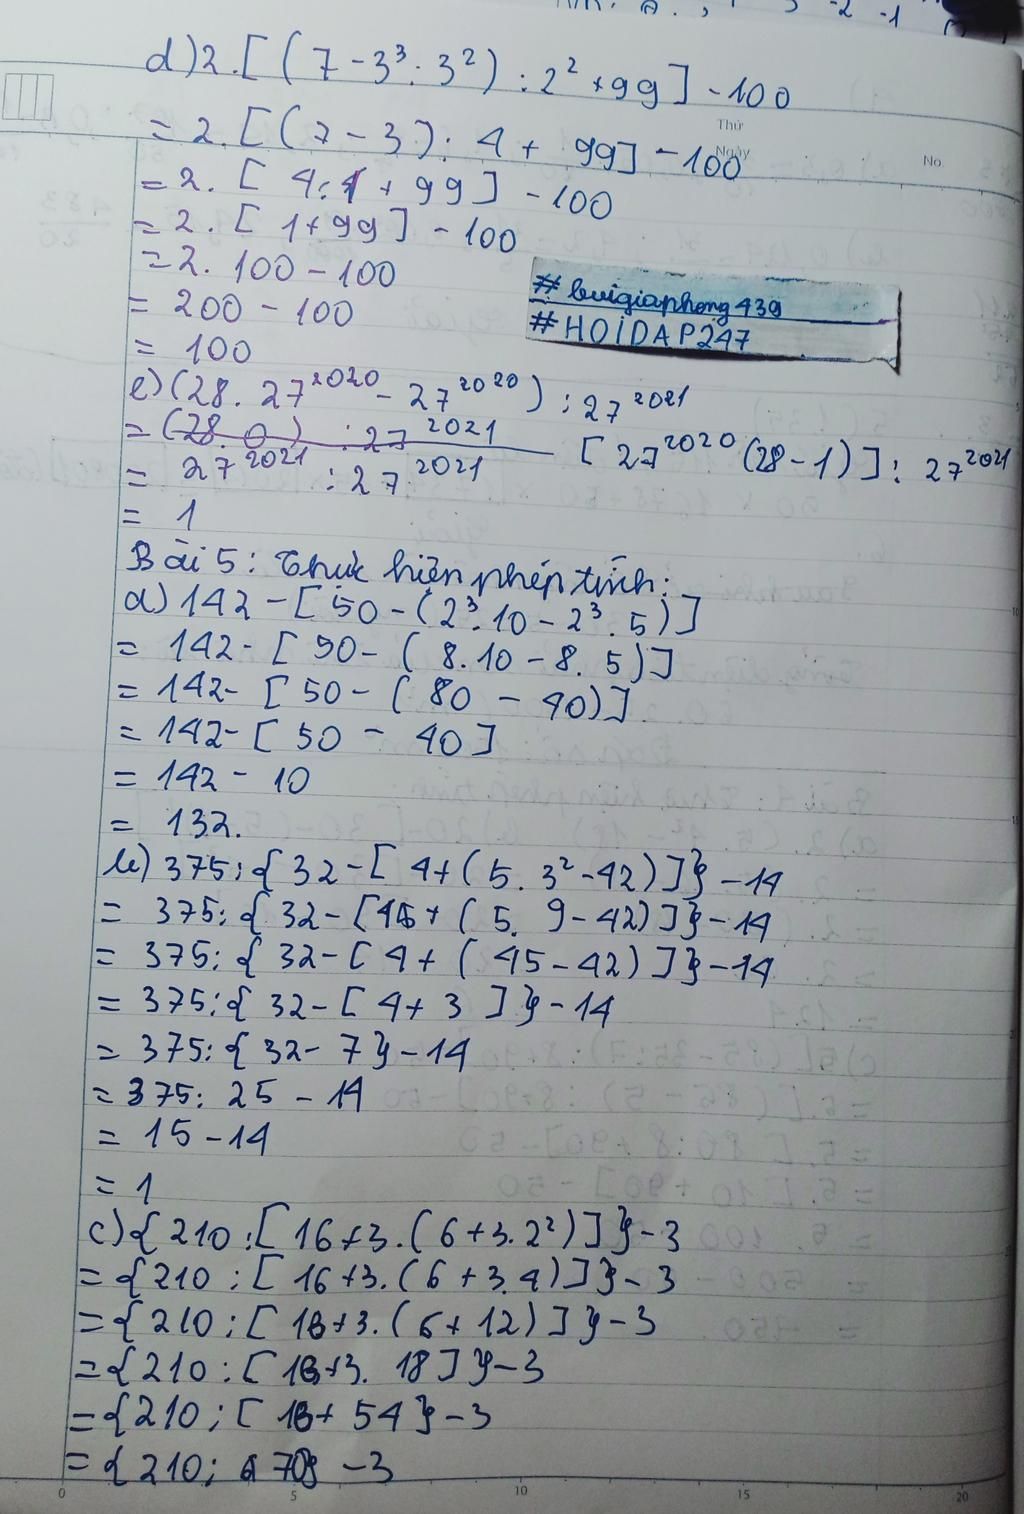 d) 2.[(7-3³:3²):2²+99]-100
Thứ
= 2.[(7-3):4+99]-100
Ngày
No.
= 2.[4:4+99]-100
= 2.[1+99]-100
= 2.100-100
= 200-100
# buigiaphong439
# HOIDAP247
= 100
e) (28.27²⁰²⁰-27²⁰²⁰):27²⁰²¹
= (28.0):27²⁰²¹ [27²⁰²⁰(28-1)]:27²⁰²¹
= 27²⁰²¹:27²⁰²¹
= 1
Bài 5: Thực hiện phép tính:
a) 142-[50-(2³.10-2³.5)]
= 142-[50-(8.10-8.5)]
= 142-[50-(80-40)]
= 142-[50-40]
= 142-10
= 132.
b) 375:{32-[4+(5.3²-42)]}-14
= 375:{32-[4+(5.9-42)]}-14
= 375:{32-[4+(45-42)]}-14
= 375:{32-[4+3]}-14
= 375:{32-7}-14
= 375:25-14
= 15-14
= 1
c) {210:[16+3.(6+3.2²)]}-3
= {210:[16+3.(6+3.4)]}-3
= {210:[16+3.(6+12)]}-3
= {210:[16+3.18]}-3
= {210:[16+54}-3
= {210:70}-3
0 5 10 15 20